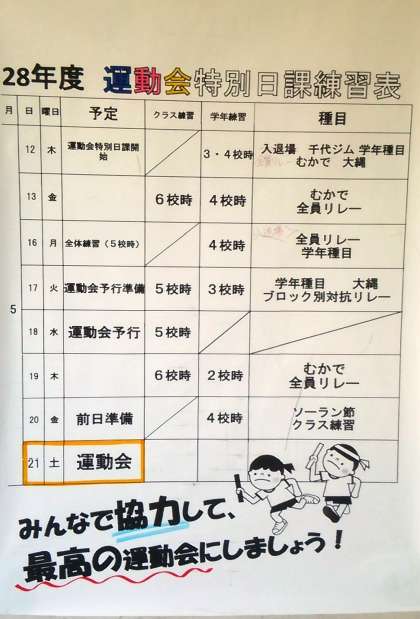 28年度 運動会特別日課練習表
月 日 曜日 予定 クラス練習 学年練習 種目
5
12 木 運動会特別日課開始 3・4校時 入退場 千代ジム 学年種目
むかで 大縄
13 金 6校時 4校時 むかで
全員リレー
16 月 全体練習(5校時) 4校時 全員リレー
学年種目
17 火 運動会予行準備 5校時 3校時 学年種目 大縄
ブロック別対抗リレー
18 水 運動会予行 5校時
19 木 6校時 2校時 むかで
全員リレー
20 金 前日準備 4校時 ソーラン節
クラス練習
21 土 運動会
みんなで協力して、
最高の運動会にしましょう!